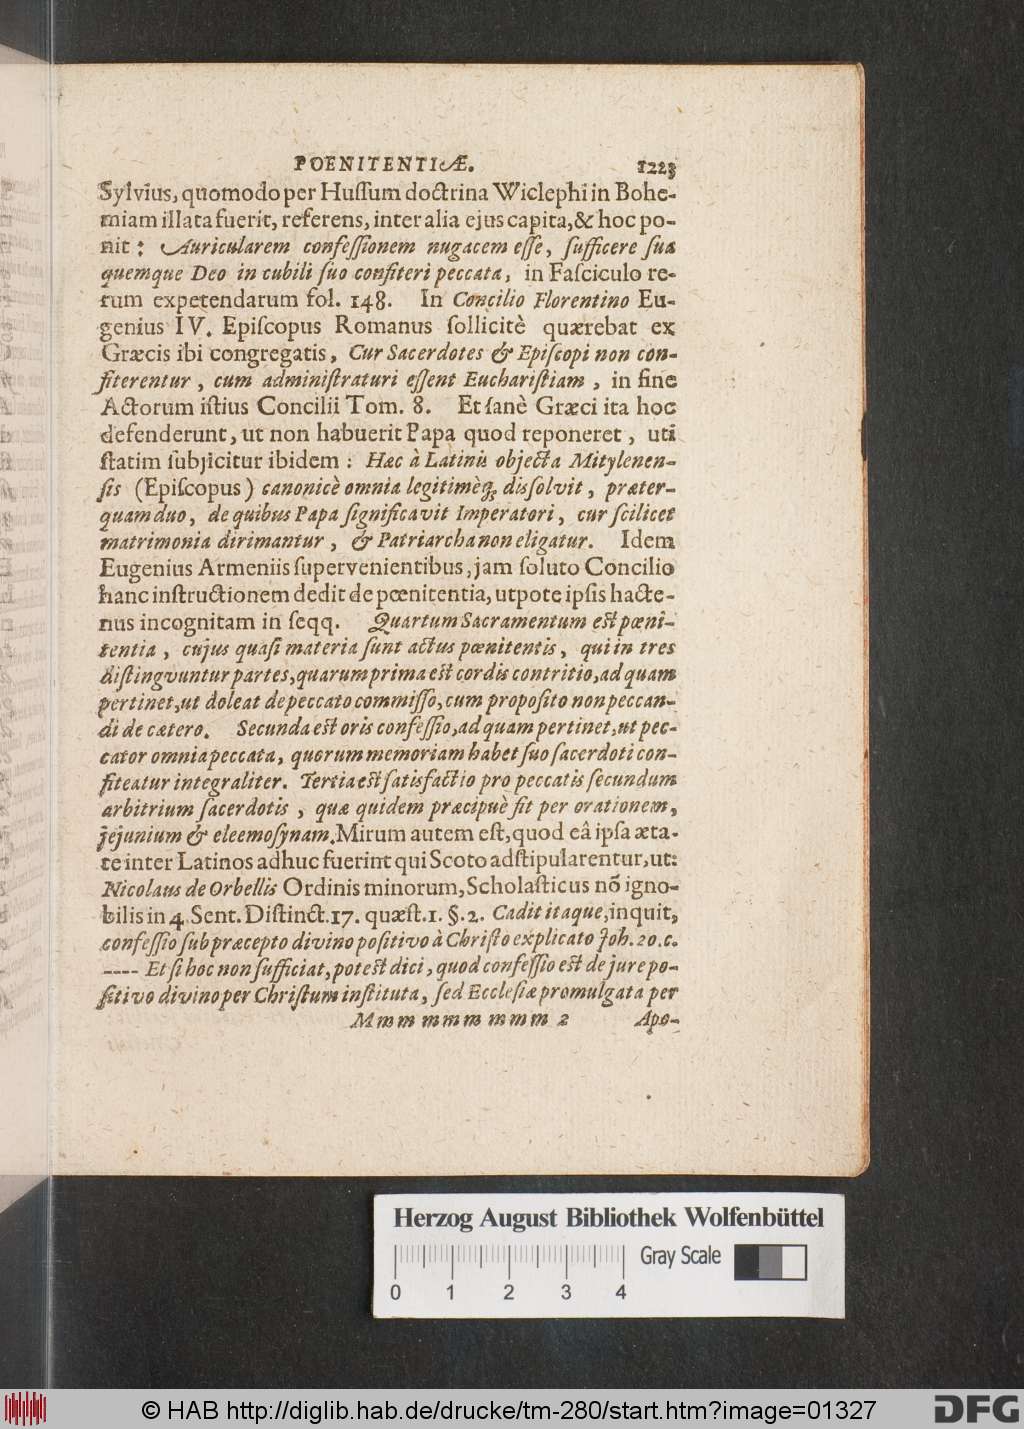 POENITENTIÆ. 1223
Sylvius, quomodo per Huſſum doctrina Wiclephi in Bohe-
miam illata fuerit, referens, inter alia ejus capita, & hoc po-
nit: Auricularem confeſſionem nugacem eſſe, ſufficere ſua
quemque Deo in cubili ſuo confiteri peccata, in Faſciculo re-
rum expetendarum fol. 148. In Concilio Florentino Eu-
genius IV. Epiſcopus Romanus ſollicitè quærebat ex
Græcis ibi congregatis, Cur Sacerdotes & Epiſcopi non con-
fiterentur, cum adminiſtraturi eſſent Euchariſtiam, in fine
Actorum iſtius Concilii Tom. 8. Et ſanè Græci ita hoc
defenderunt, ut non habuerit Papa quod reponeret, uti
ſtatim ſubjicitur ibidem: Hæc à Latinis objecta Mitylenen-
ſis (Epiſcopus) canonicè omnia legitimèq; diſſolvit, præter-
quam duo, de quibus Papa ſignificavit Imperatori, cur ſcilicet
matrimonia dirimantur, & Patriarcha non eligatur. Idem
Eugenius Armeniis ſupervenientibus, jam ſoluto Concilio
hanc inſtructionem dedit de pœnitentia, utpote ipſis hacte-
nus incognitam in ſeqq. Quartum Sacramentum eſt pœni-
tentia, cujus quaſi materia ſunt actus pœnitentis, qui in tres
diſtingvuntur partes, quarum prima eſt cordis contritio, ad quam
pertinet, ut doleat de peccato commiſſo, cum propoſito non peccan-
di de cætero. Secunda eſt oris confeſſio, ad quam pertinet, ut pec-
cator omnia peccata, quorum memoriam habet ſuo ſacerdoti con-
fiteatur integraliter. Tertia eſt ſatisfactio pro peccatis ſecundum
arbitrium ſacerdotis, quæ quidem præcipuè fit per orationem,
jejunium & eleemoſynam. Mirum autem eſt, quod eâ ipſa æta-
te inter Latinos adhuc fuerint qui Scoto adſtipularentur, ut:
Nicolaus de Orbellis Ordinis minorum, Scholaſticus nõ igno-
bilis in 4 Sent. Diſtinct. 17. quæſt. 1. §. 2. Cadit itaque, inquit,
confeſſio ſub præcepto divino poſitivo à Chriſto explicato Joh. 20. c.
---- Et ſi hoc non ſufficiat, poteſt dici, quod confeſſio eſt de jure po-
ſitivo divino per Chriſtum inſtituta, ſed Eccleſiæ promulgata per
Mmm mmm mmm 2 Apo-
Herzog August Bibliothek Wolfenbüttel
Gray Scale
0 1 2 3 4
© HAB http://diglib.hab.de/drucke/tm-280/start.htm?image=01327
DFG